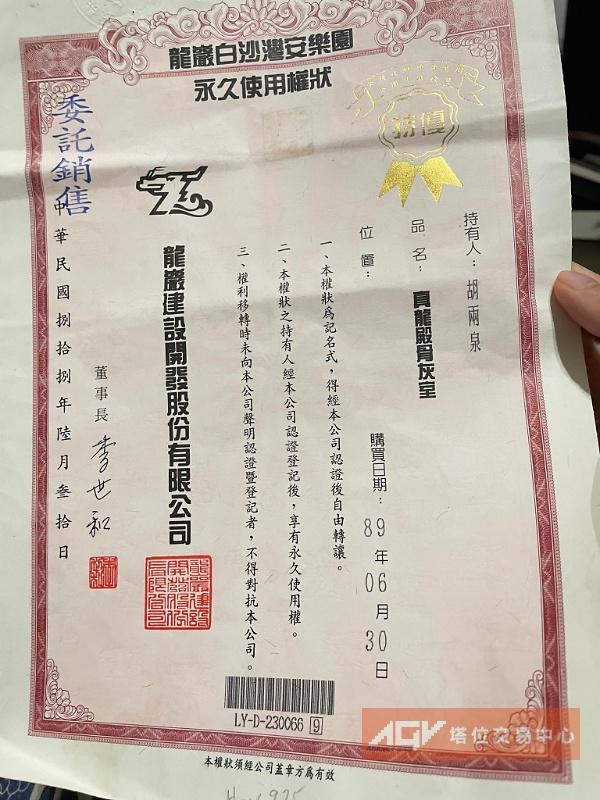 龍巖白沙灣安樂園
永久使用權狀
特優
持有人：胡兩泉
品名：真龍殿骨灰室
位置：
購買日期：89年06月30日
一、本權狀為記名式，得經本公司認證後自由轉讓。
二、本權狀之持有人經本公司認證登記後，享有永久使用權。
三、權利移轉時未向本公司聲明認證暨登記者，不得對抗本公司。
龍巖建設開發股份有限公司
董事長 李世和
中華民國捌拾捌年陸月叁拾日
委託銷售
LY-D-230066 9
本權狀須經公司蓋章方為有效
AGV 塔位交易中心